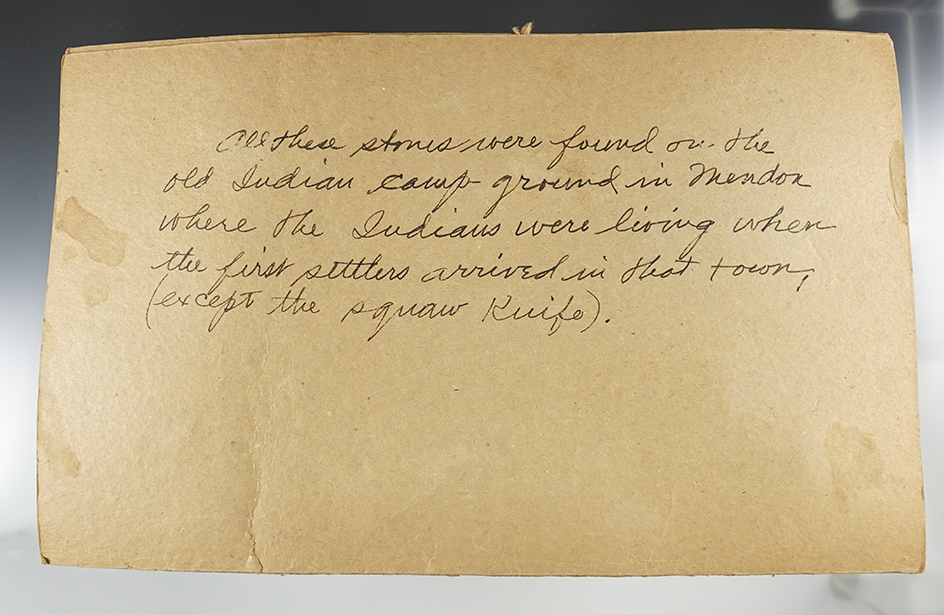 All these stones were found on the
old Indian camp ground in Mendon
where the Indians were living when
the first settlers arrived in that town,
(except the squaw Knife).